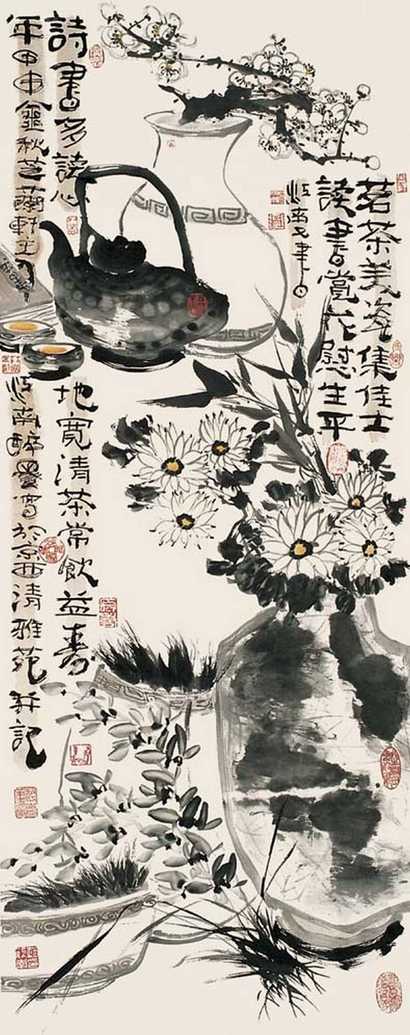 茗茶美瓷集佳士
讀書賞花慰生平
南又筆
詩書多讀心地寬清茶常飲益壽
年甲申金秋芝蘭軒主南醉墨寫於京西清雅苑并記